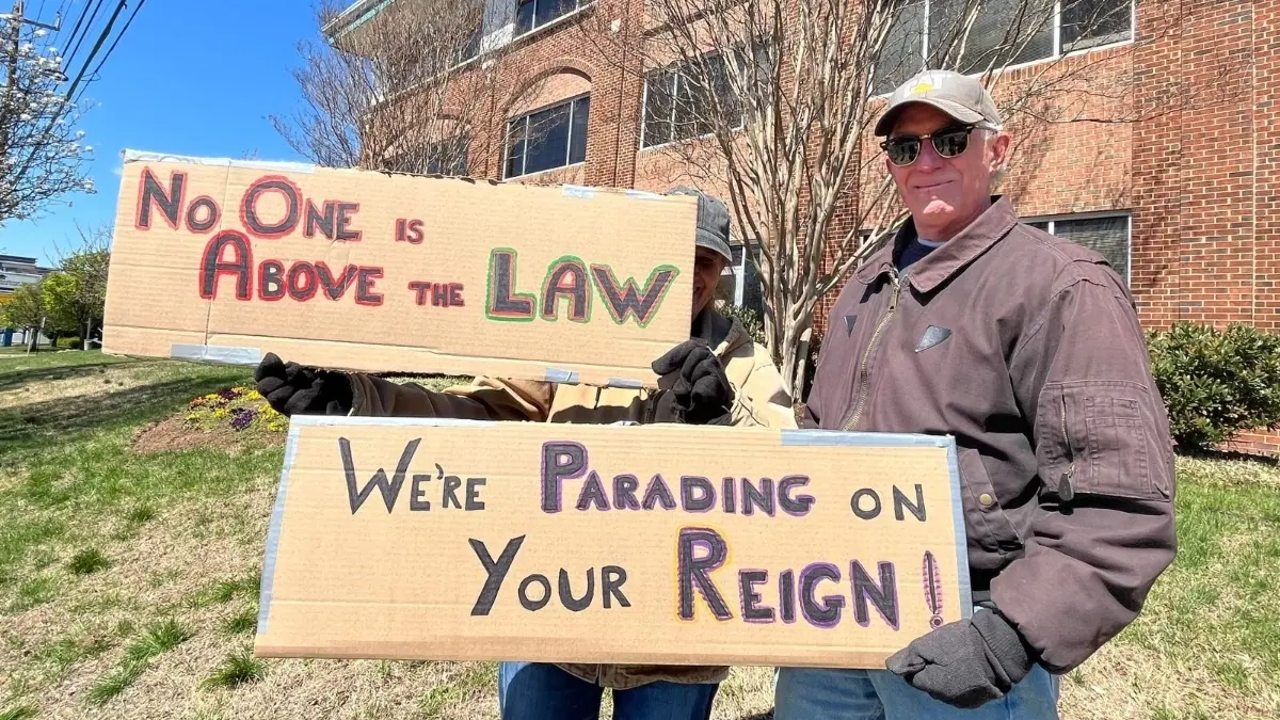 No One is
Above the Law
We're Parading on
Your Reign!